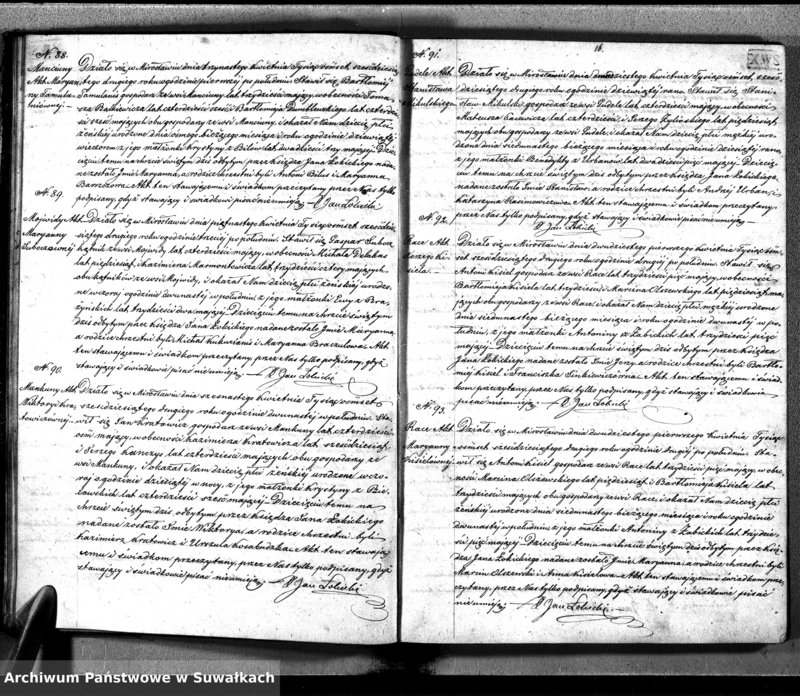 N. 88.
Działo się w Mirosławiu dnia trzynastego kwietnia Tysiąc osmset sześćdziesią
tego drugiego roku o godzinie pierwszéj po południu Stawił się Bartłomiéj
gospodarz ze wsi Manciuny lat trzydzieści mający, w obecności
lat czterdzieści Bartłomieja lat czterdzie
ści sześć mających obu gospodarzy ze wsi Manciuny, i okazał Nam dziecię płci
żeńskiéj urodzone dnia bieżącego miesiąca i roku o godzinie dziewiątéj
wieczorem z jego małżonki Krystyny z lat dwadzieścia trzy mającéj. Dzie
cięciu temu na chrzcie świętym dziś odbytym przez księdza Jana Łobickiego nada
ne zostało Imie Maryanna, a rodzice chrzestni byli Antoni i Maryanna
Akt ten stawającemu i świadkom przeczytany przez Nas tylko
podpisany, gdyż stawający i świadkowie pisać nieumieją.
N. 89.
Mojwidy Akt
Maryanny
Działo się w Mirosławiu dnia piętnastego kwietnia Tysiąc osmset sześćdzie
siątego drugiego roku o godzinie trzeciéj po południu. Stawił się Gaspar
ze wsi Mojwidy lat czterdzieści mający, w obecności Michała
lat pięćdziesiąt, i Kazimierza lat trzydzieści cztery mających
ze wsi Mojwidy, i okazał Nam dziecię płci żeńskiéj urodzo
ne wczoraj o godzinie dwunastéj w południe z jego małżonki Ewy z
lat trzydzieści dwa mającéj. Dziecięciu temu na chrzcie świętym
dziś odbytym przez księdza Jana Łobickiego nadane zostało Imie Maryanna
a rodzice chrzestni byli Michał i Maryanna Akt
ten stawającemu i świadkom przeczytany przez Nas tylko podpisany, gdyż
stawający i świadkowie pisać nieumieją.
N. 90.
Mankuny Akt
Wiktoryi
Działo się w Mirosławiu dnia szesnastego kwietnia Tysiąc osmset
sześćdziesiątego drugiego roku o godzinie dwunastéj w południe. Sta
wił się Jan Kratowicz gospodarz ze wsi Mankuny lat czterdzieści
osm mający, w obecności Kazimierza Kratowicza lat sześćdziesiąt,
i Jerzego lat czterdzieści mających, obu gospodarzy ze
wsi Mankuny, i okazał Nam dziecię płci żeńskiéj urodzone wczo
raj o godzinie dziesiątéj w nocy, z jego małżonki Krystyny z
lat czterdzieści sześć mającéj. Dziecięciu temu na
chrzcie świętym dziś odbytym przez księdza Jana Łobickiego
nadane zostało Imie Wiktorya, a rodzice chrzestni byli
Kazimierz Kratowicz i Urszula Akt ten stawają
cemu i świadkom przeczytany, przez Nas tylko podpisany, gdyż
stawający i świadkowie pisać nieumieją.
16.
N. 91.
Akt
Stanisława
Mikulskiego
Działo się w Mirosławiu dnia dwudziestego kwietnia Tysiąc osmset sześć
dziesiątego drugiego roku o godzinie dziewiątéj rano. Stawił się Stani
sław Mikulski gospodarz ze wsi lat czterdzieści mający, w obecności
Mateusza lat czterdzieści, i Jerzego lat pięćdziesiąt,
mających obu gospodarzy ze wsi i okazał Nam dziecię płci męzkiéj uro
dzone dnia siedmnastego bieżącego miesiąca i roku o godzinie dziewiątéj rano,
z jego małżonki Benedykty z Urbanów lat dwadzieścia pięć mającéj. Dziecię
ciu temu na chrzcie świętym dziś odbytym przez księdza Jana Łobickiego,
nadane zostało Imie Stanisław, a rodzice chrzestni byli Andrzej Urban, i
Katarzyna Akt ten stawającemu i świadkom przeczytany,
przez Nas tylko podpisany, gdyż stawający i świadkowie pisać nieumieją.
N. 92.
Race Akt
Jerzego Ki
siela.
Działo się w Mirosławiu dnia dwudziestego pierwszego kwietnia Tysiąc osm
set sześćdziesiątego drugiego roku o godzinie drugiéj po południu. Stawił się
Antoni Kisiel gospodarz ze wsi Race lat trzydzieści pięć mający, w obecności
Bartłomieja Kisiela lat trzydzieści, i Marcina Olszewskiego lat pięćdziesiąt, ma
jących obu gospodarzy ze wsi Race, i okazał Nam dziecię płci męzkiéj urodzone
dnia siedmnastego bieżącego miesiąca i roku o godzinie dwunastéj w po
łudnie, z jego małżonki Antoniny z Łabickich lat trzydzieści pięć
mającéj. Dziecięciu temu na chrzcie świętym dziś odbytym przez księdza
Jana Łobickiego nadane zostało Imie Jerzy, a rodzice chrzestni byli Bartło
miéj Kisiel i Franciszka Akt ten stawającemu i świad
kom przeczytany, przez Nas tylko podpisany, gdyż stawający i świadkowie
pisać nieumieją.
N. 93.
Race Akt
Maryanny
Kisielówny
Działo się w Mirosławiu dnia dwudziestego pierwszego kwietnia Tysiąc
osmset sześćdziesiątego drugiego roku o godzinie drugiéj po południu. Sta
wił się Antoni Kisiel gospodarz ze wsi Race lat trzydzieści pięć mający, w obe
cności Marcina Olszewskiego lat pięćdziesiąt, i Bartłomieja Kisiela, lat
trzydzieści mających obu gospodarzy ze wsi Race, i okazał Nam dziecię płci
żeńskiéj urodzone dnia siedmnastego bieżącego miesiąca i roku o godzinie
dwunastéj w południe, z jego małżonki Antoniny z Łabickich lat trzydzie
ści pięć mającéj. Dziecięciu temu na chrzcie świętym dziś odbytym przez księ
dza Jana Łobickiego nadane zostało Imie Maryanna, a rodzice chrzestni byli
Marcin Olszewski i Anna Kisielowa. Akt ten stawającemu i świadkom prze
czytany, przez Nas tylko podpisany, gdyż stawający i świadkowie pisać
nieumieją.
Archiwum Państwowe w Suwałkach